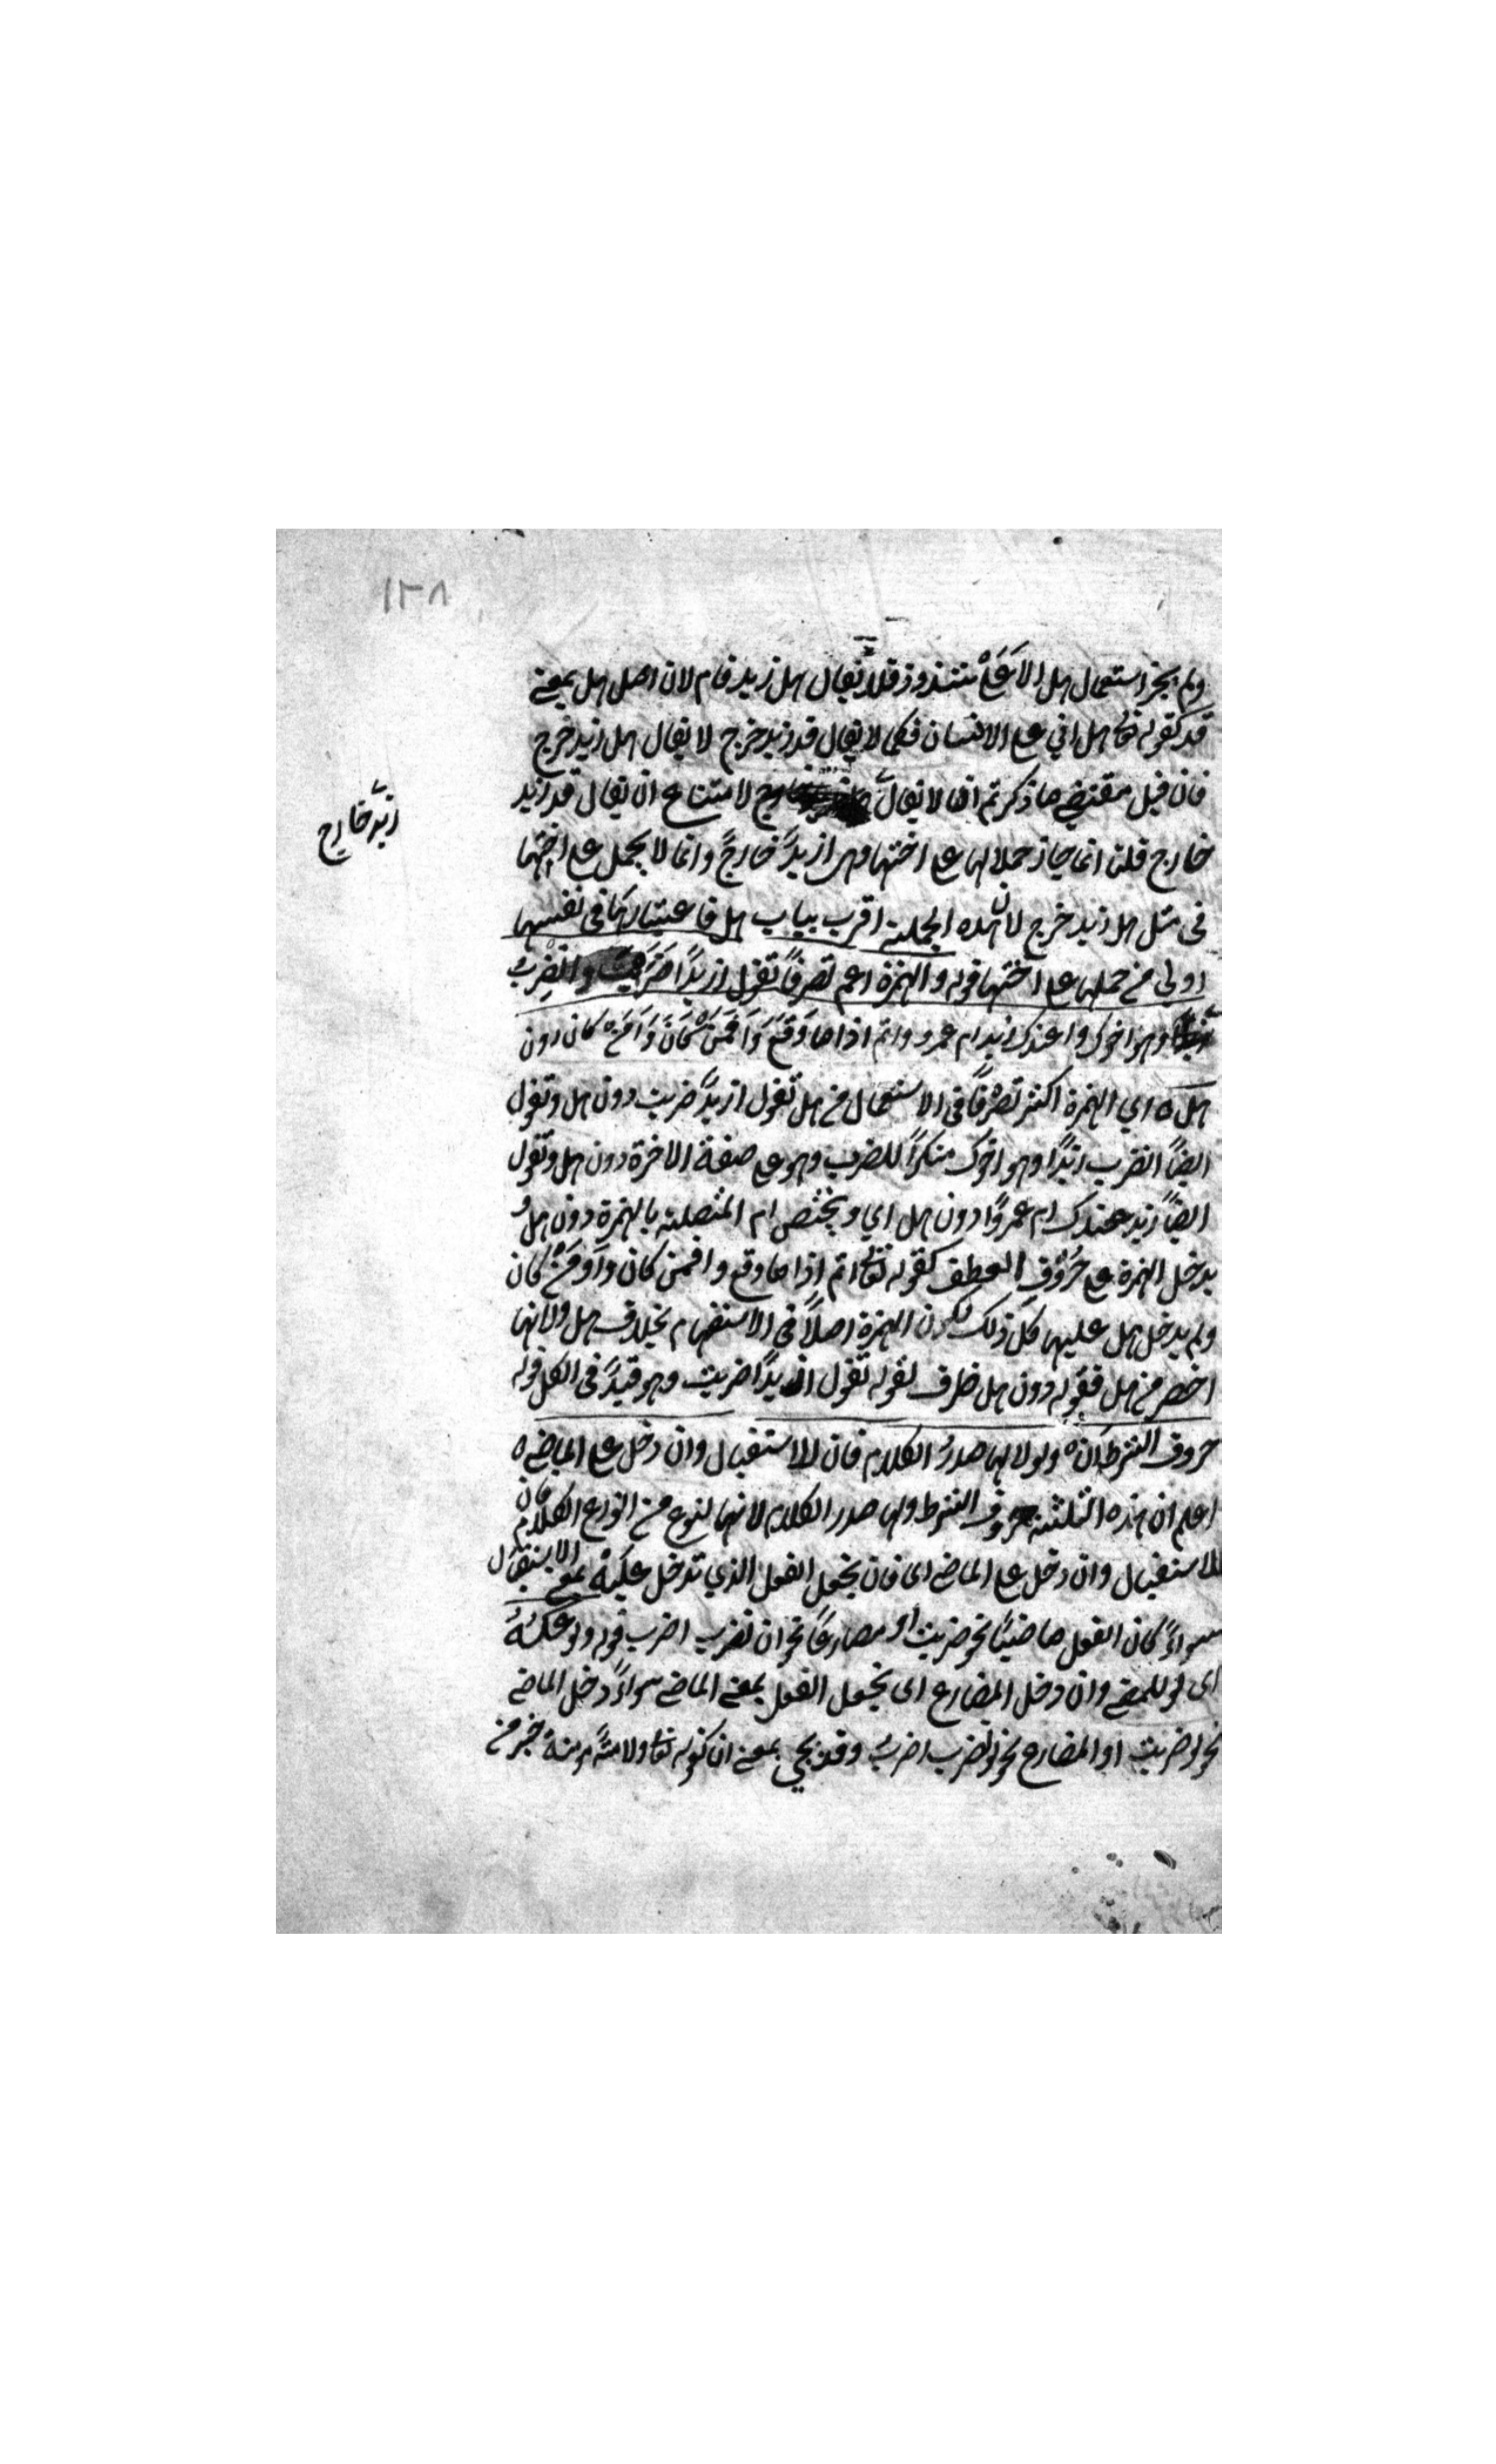 ١٢٨
ولم يجز استعمال هل الا على شذوذ فلا يقال هل زيد قام لان اصل هل بمعنى
قد كقوله تعا هل اتي على الانسان فكما لا يقال قد زيد خرج لا يقال هل زيد خرج
فان قيل مقتضى ما ذكرتم ان لا يقال هل زيد خارج لامتناع ان يقال قد زيد
زيد خارج
خارج قلنا انما جاز حملا لها على اختها وهي ازيد خارج وانما لا يحمل على اختها
في مثل هل زيد خرج لان هذه الجملة اقرب بباب هل فاعتبارها في نفسها
اولى من حملها على اختها قوله والهمزة اعم تصرفاً تقول ازيدًا ضربت واتضرب
زيدا وهو اخوك واعندك زيد ام عمرو واثم اذا ما وَقَعَ وَاَفَمَنْ كَانَ وَاَوَمَنْ كان دون
هل ٥ اي الهمزة اكثر تصرفًا في الاستعمال من هل تقول ازيدًا ضربت دون هل وتقول
ايضًا اتضرب زيدًا وهو اخوك منكرًا للضرب وهو على صفة الاخوة دون هل وتقول
ايضًا ازيد عندك ام عمروًا دون هل اي ويختص ام المتصلة بالهمزة دون هل و
يدخل الهمزة على حُرُوْفِ العطف كقوله تعا اثم اذا ما وقع وافمن كان وَاَوَمَنْ كان
ولم يدخل هل عليها فكل ذلك لكون الهمزة اصلاً في الاستفهام بخلاف هل ولانها
اخصر من هل فقوله دون هل ظرف لقوله تقول ازيدًا ضربت وهو قيدٌ في الكل قوله
حروف الشرط ان ولو ولها صدرُ الكلام فان للاستقبال وان دخل على الماضي ٥
اعلم ان هذه الثلثة حروف الشرط ولها صدر الكلام لانها لنوع من انواع الكلام فان
للاستقبال وان دخل على الماضي اى فان يجعل الفعل الذي تدخل عليه بمعنى الاستقبال
سواءً كان الفعل ماضيًا نحو ضربت او مضارعًا نحو ان تضرب اضرب قوله ولو عكسُهُ
اى لو للمضي وان دخل المضارع اى يجعل الفعل بمعنى الماضي سواءً دخل الماضي
نحو لو ضربت او المضارع نحو لو تضرب اضرب وقد يجي بمعنى ان كقوله تعا ولامةٌ مؤمنة خير من